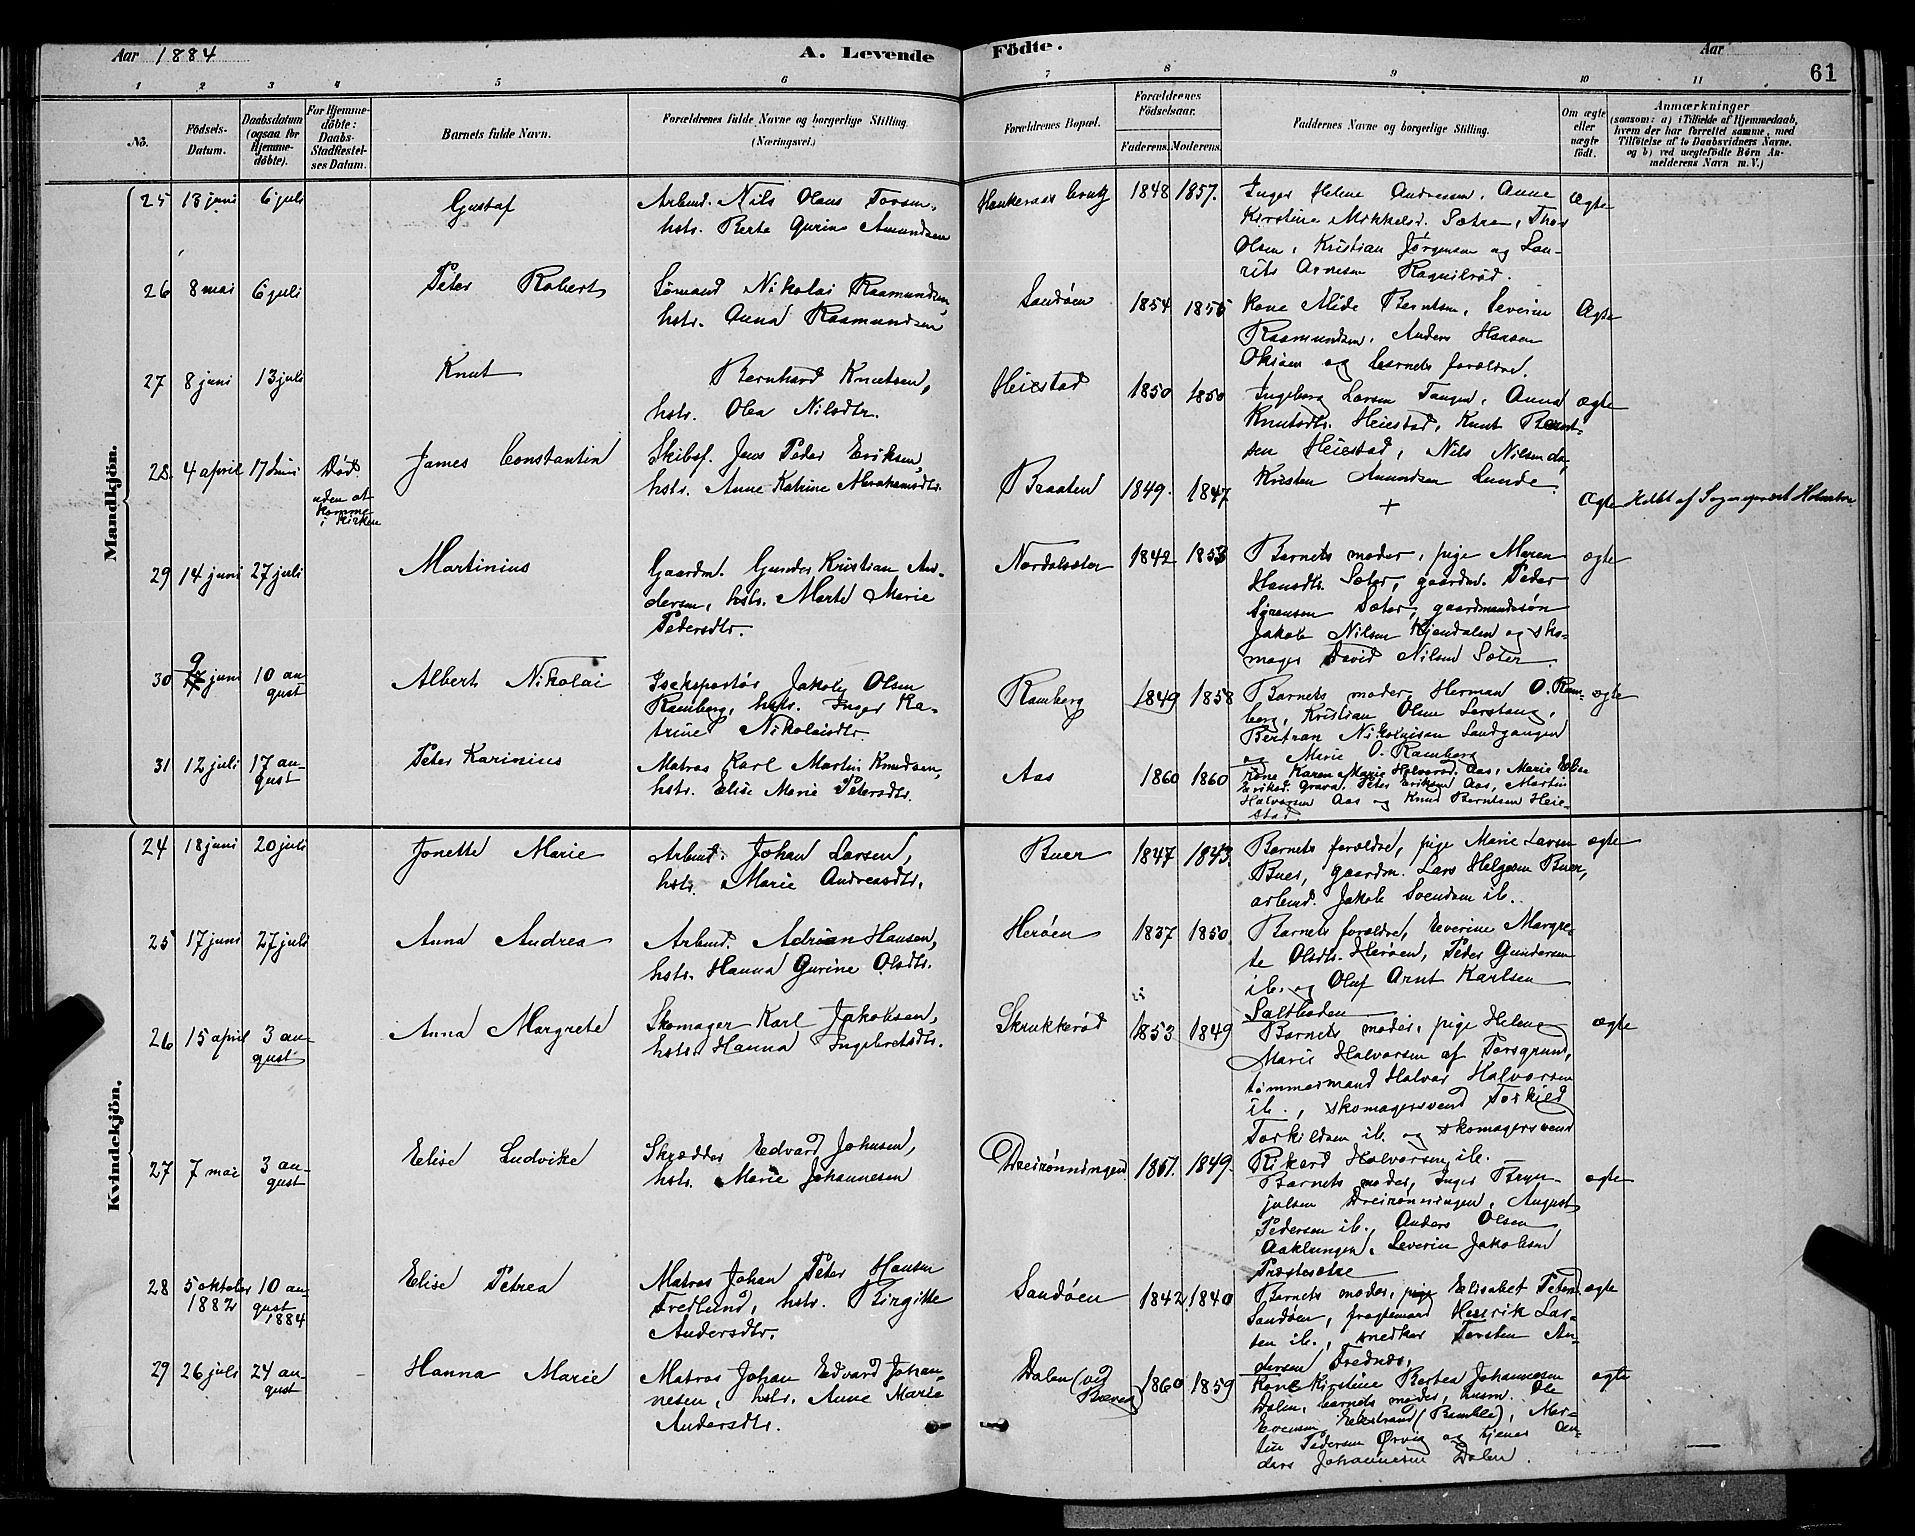 Aar 1884 A. Levende Födte. Aar 61
1 2 3 4 5 6 7 8 9 10 11
No.
Födsels-Datum.
Daabsdatum (ogsaa for Hjemmedöbte).
For Hjemmedöbte: Daabs-Stadfæstelses Datum.
Barnets fulde Navn.
Forældrenes fulde Navne og borgerlige Stilling.
(Næringsvei.)
Forældrenes Bopæl.
Forældrenes Födselsaar.
Faderens. Moderens.
Faddernes Navne og borgerlige Stilling.
Om ægte eller uægte født.
Anmærkninger
(saasom: a) i Tilfælde af Hjemmedaab, hvem der har forrettet samme, med Tilföielse af to Daabsvidners Navne, og b) ved uægtefödte Börn Anmelderens Navn m. V.)
Mandkjön.
25 18 juni 6 juli Gustaf
Arbmd. Nils Olaus
hstr. Berte Gurine Amundsen
1848 1857.
Inger Helene Andresen, Anne
Kirstine Mikkelsd. Sætre, Thor
Olsen, Kristian Jørgensen og Lau-
rits Arnesen
Ægte
26 8 mai 6 juli Peter Robert
Sømand Nikolai Rasmundsen
hstr. Anna Rasmundsen
Sandøen 1854 1856
Kone Alide Berntsen, Severin
Rasmundsen, Anders Hansen
og barnets forældre.
Ægte
27 8 juni 13 juli Knut
Bernhard Knutsen,
hstr. Olea Nilsdtr.
Heiestad 1850 1850
Ingeborg Larsen Tangen, Anna
Knutsdtr. Heiestad, Knut Bernt-
sen Heiestad, Nils Nilsen do,
Kristen Amundsen Lunde.
ægte
28. 4 april 17 Juni Død uden at komme i kirken
James Constantin
Skibsf. Jens Peder Eriksen,
hstr. Anne Katrine Abrahamsdtr.
Braaten 1849. 1847
+
Ægte Døbt af Sogneprest
29 14 juni 27 juli Martinius
Gaardm. Gunder Kristian An-
dersen, hstr. Marte Marie
Pedersdtr.
Nordalsæter 1842 1853
Barnets moder, pige Maren
Hansdtr. Sæter, gaardm. Peder
Sørensen Sæter, gaardmandssøn
Jakob Nilsen Kjendalen og sko-
mager David Nilsen Sæter.
ægte
30 9 juni 10 au-
gust
Albert Nikolai
Isekspeditør Jakob Olsen
Ramberg, hstr. Inger Ka-
trine Nikolaisdtr.
Ramberg 1849 1858
Barnets moder, Herman O. Ram-
berg, Kristian Olsen Lerstang,
Bertran Nikolaisen Sandgangen
og Marie O. Ramberg
ægte
31 12 juli 17 au-
gust
Peter Karinius
Matros Karl Martin Knudsen,
hstr. Elise Marie Petersdtr.
Aas 1860 1860
Kone Karen Marie Halvorsd. Aas, Marie Elise
Eriksd. Grava, Peter Eriksen Aas, Martin
Halvorsen Aas og Knud Berntsen Heie-
stad.
Kvindekjön.
24 18 juni 20 juli Jonette Marie
Arbmd. Johan Larsen,
hstr. Marie Andreasdtr.
Buer 1847 1843.
Barnets forældre, pige Marie Larsen
Buer, gaardm. Lars Helgesen Buer,
arbmd. Jakob Svendsen ib.
ægte
25 17 juni 27 juli Anna Andrea
Arbmd. Adrian Hansen,
hstr. Hanna Gurine Olsdtr.
Herøen 1837 1850.
Barnets forældre, Severine Margre-
te Olsdtr. Herøen, Peder Gundersen
ib. og Oluf Arnt Karlsen
Saltboden
26 15 april 3 au-
gust
Anna Margrete
Skomager Karl Jakobsen,
hstr. Hanna Ingebretsdtr.
Skrukkerød 1853 1849
Barnets moder, pige Helene
Marie Halvorsen af Porsgrund,
tømmermand Halvor Halvorsen
ib., skomagersvend Torkild
Torkildsen ib. og skomagersvend
Rikard Halvorsen, ib.
ægte
27 7 mai 3 au-
gust
Elise Ludvike
Skrædder Edvard Johnsen,
hstr. Marie Johannesen
Dreirønningen 1851. 1849.
Barnets moder, Inger Bryn-
julsen Dreirønningen, August
Pedersen ib., Anders Olsen
Aaklungen, Severin Jakobsen
Prestesætre
ægte
28 5 oktober
1882 10 au-
gust
1884
Elise Petrea
Matros Johan Peter Hansen
Fredlund, hstr. Birgitte
Andersdtr.
Sandøen 1842 1840
Barnets moder, pige Elisabet Peters.
Sandøen, fragtemand Henrik Lar-
sen ib., snedker Torsten An-
dersen Frednes.
ægte
29 26 juli 24 au-
gust
Hanna Marie
Matros Johan Edvard Johan-
nesen, hstr. Anne Marie
Andersdtr.
Dalen (ved 1860 1859
Kone Kirstine Bertea Johannesen
Dalen, barnets moder, husm. Ole
Evensen Ekstrand (Bamble), Mar-
tin Pedersen Ørvig og tjener An-
ders Johannesen Dalen.
ægte